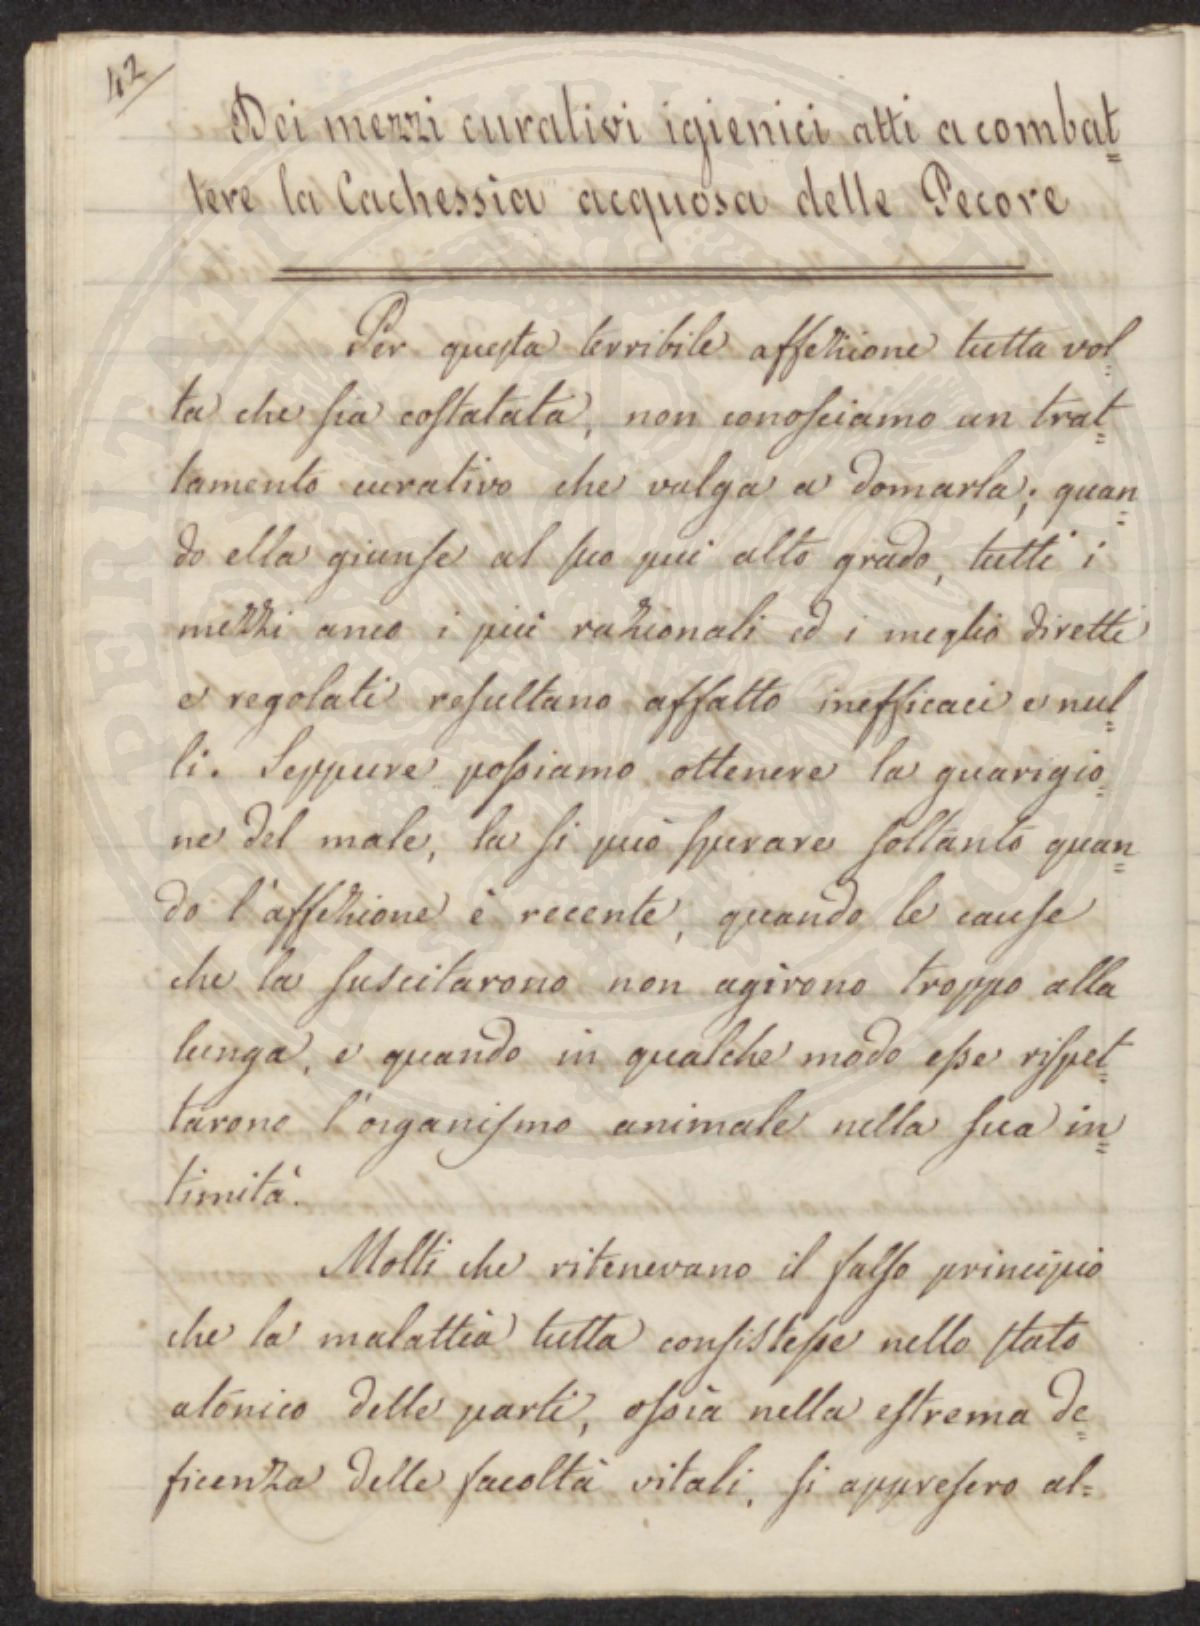 42
Dei mezzi curativi igienici atti a combat=
tere la Cachessia acquosa delle Pecore
Per questa terribile affezione tutta vol=
ta che sia costatata, non conosciamo un trat=
tamento curativo che valga a domarla; quan=
do ella giunse al suo più alto grado, tutti i
mezzi anco i più razionali ed i meglio diretti
e regolati resultano affatto inefficaci e nul=
li. Seppure possiamo ottenere la guarigio=
ne del male, la si può sperare soltanto quan=
do l'affezione è recente, quando le cause
che la suscitarono non agirono troppo alla
lunga, e quando in qualche modo esse rispet=
tarono l'organismo animale nella sua in=
timità.
Molti che ritenevano il falso principio
che la malattia tutta consistesse nello stato
atonico delle parti, ossia nella estrema de=
ficenza delle facoltà vitali, si appresero al=